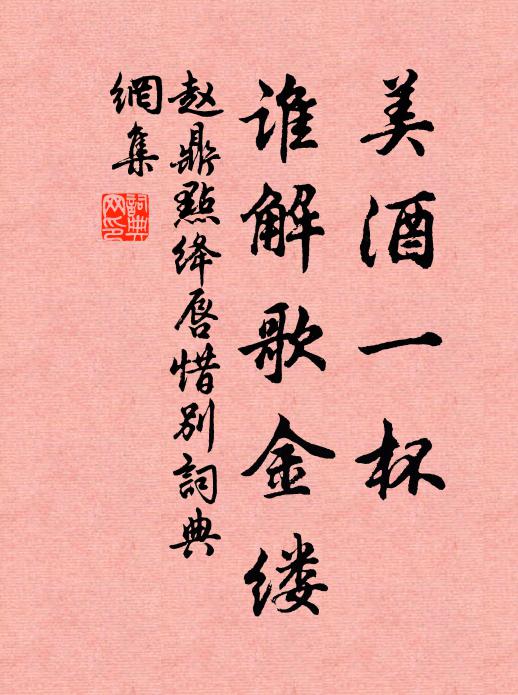 美酒一杯
谁解歌金缕
赵鼎點绛唇惜别詞典
網集
詞典
网印